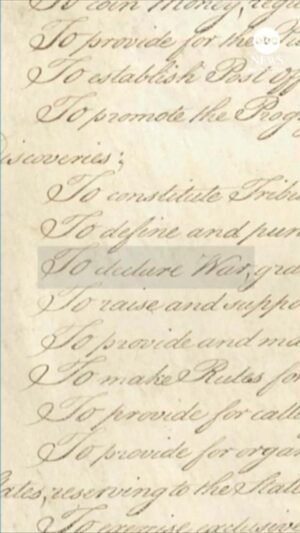 To coin Money, regu
To provide for the
To establish Post Off
To promote the Prog
iscoveries;
To constitute Tribu
To define and pun
To declare War, gra
To raise and suppo
To provide and ma
To make Rules for
To provide for calli
To provide for organ
ates, reserving to the State
To exercise exclusive
abc
NEWS